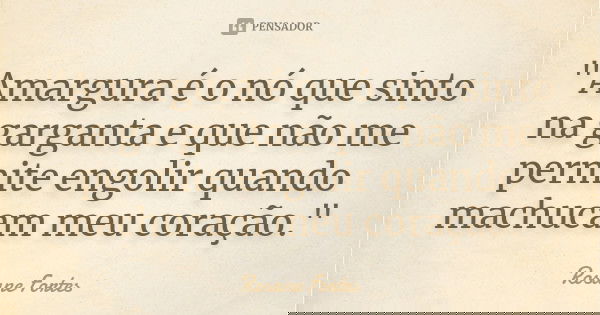 PENSADOR
"Amargura é o nó que sinto
na garganta e que não me
permite engolir quando
machucam meu coração."
Rosane Fortes